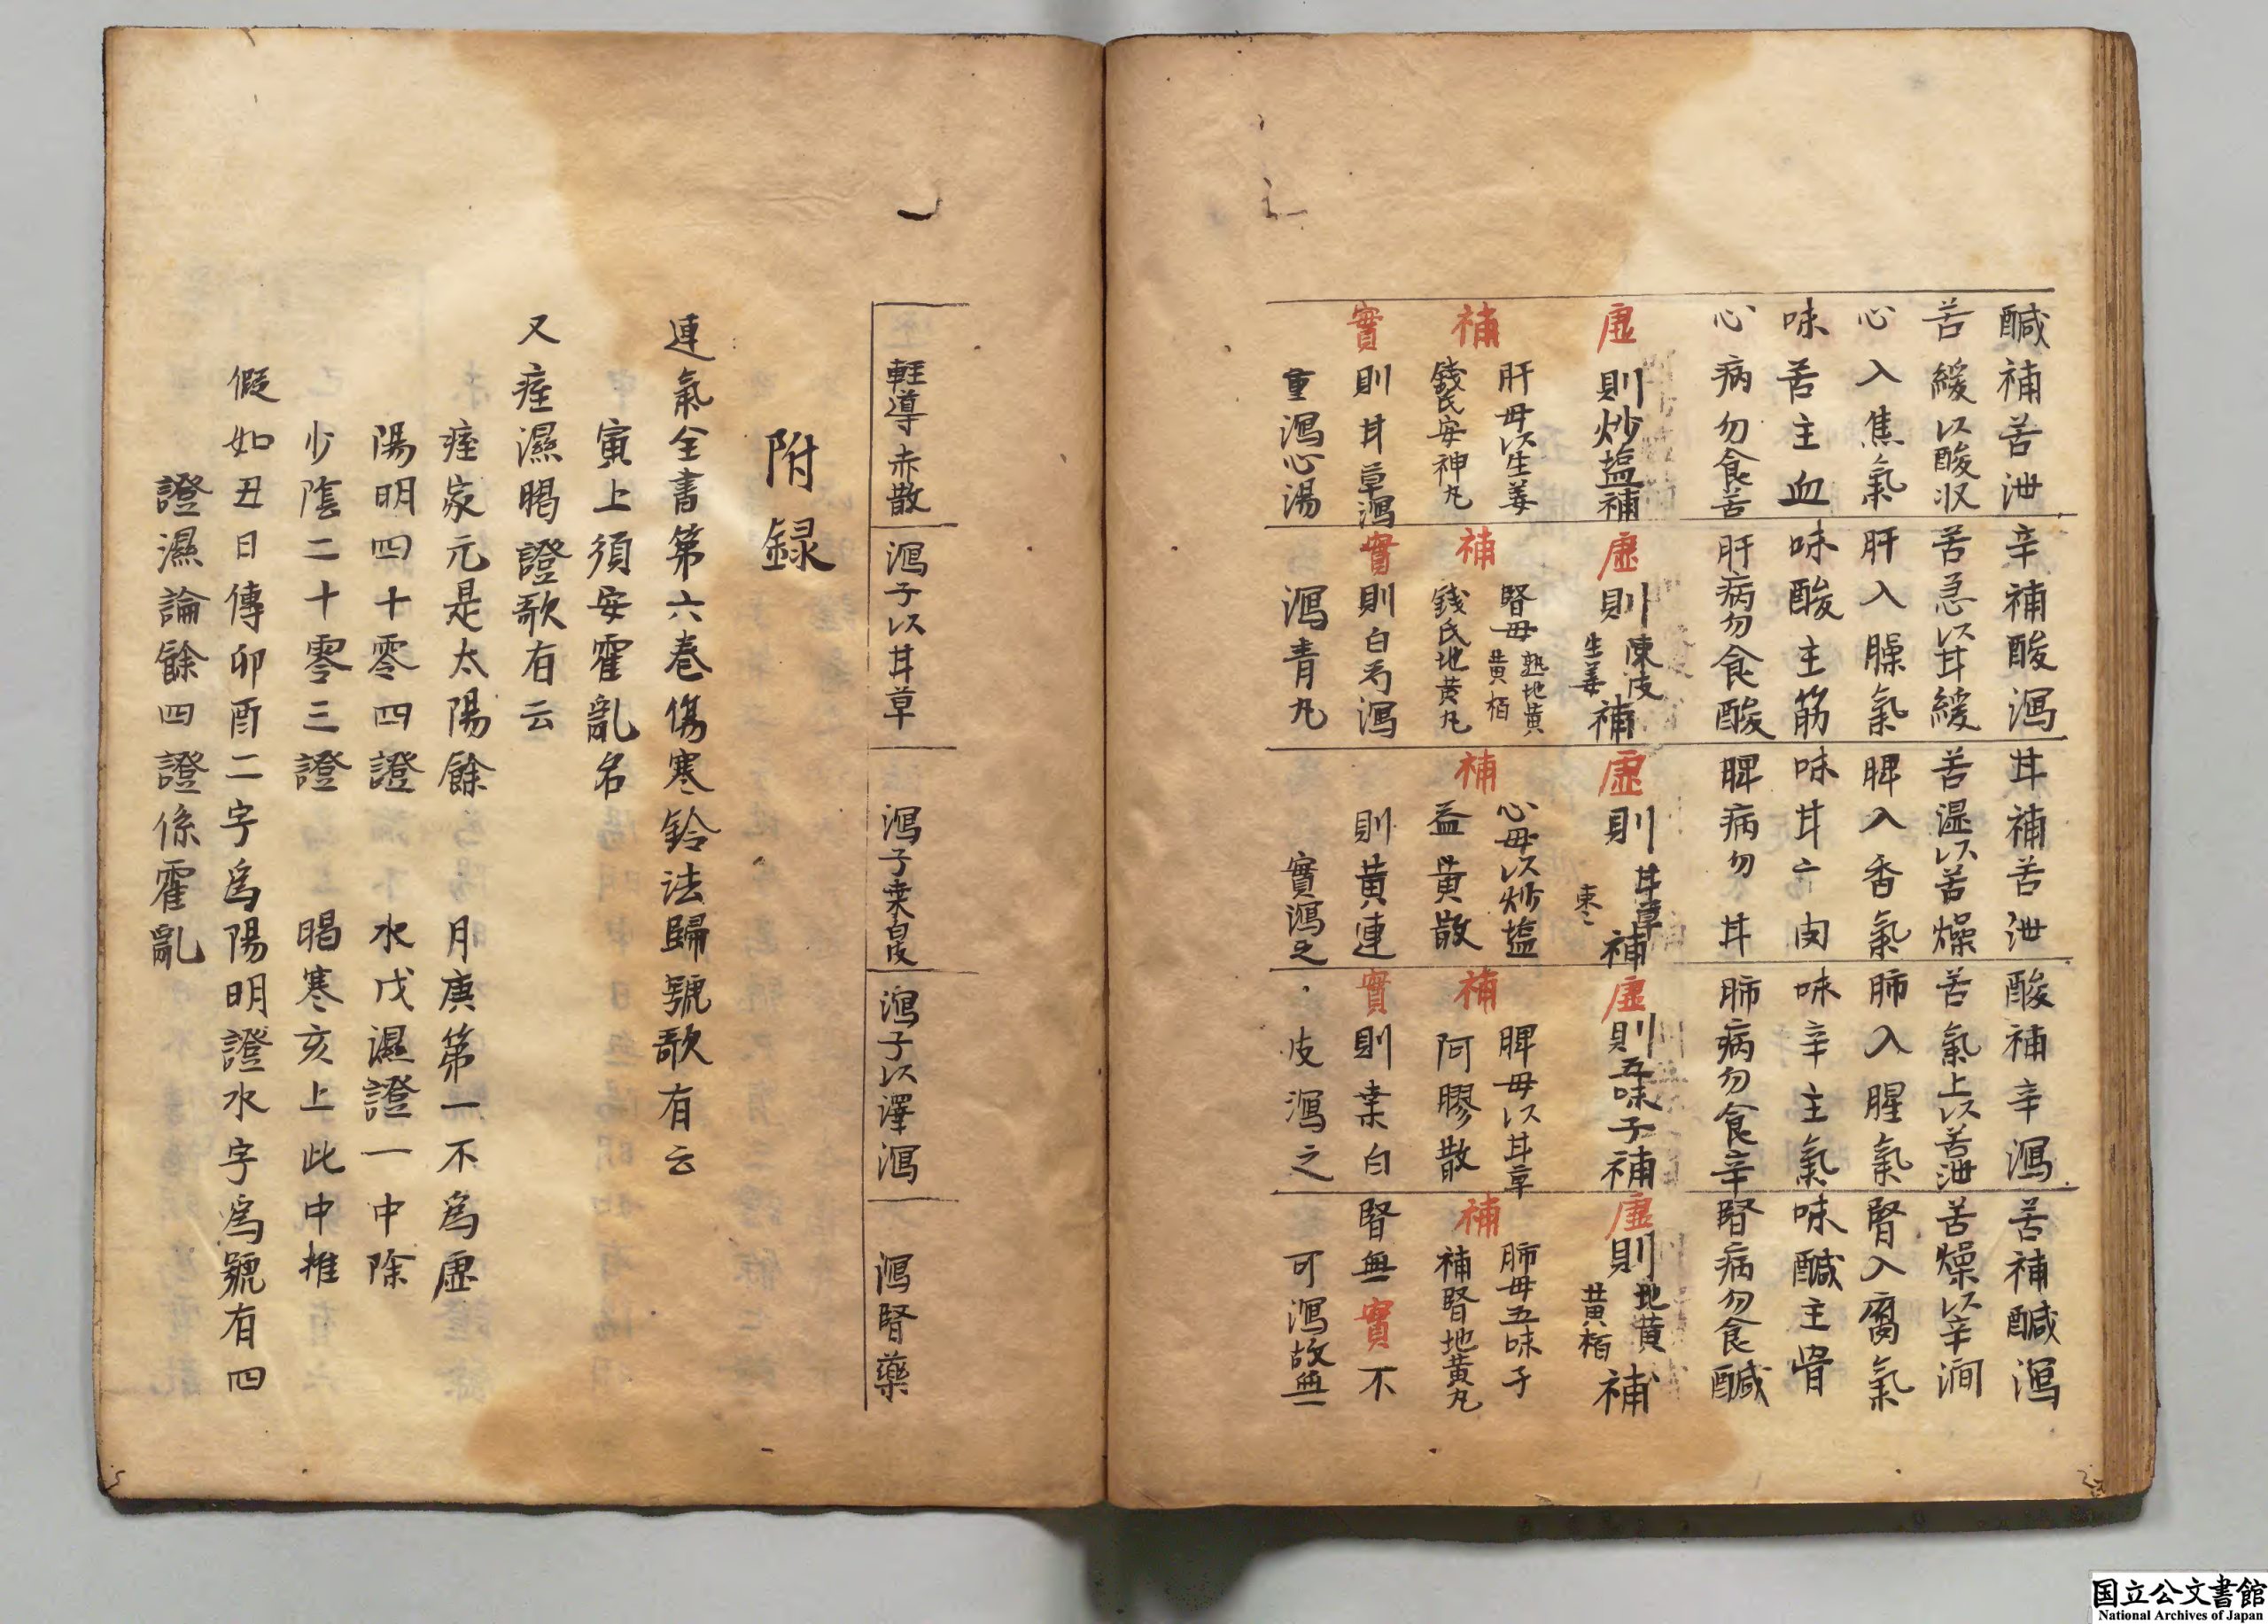 鹹補苦泄 辛補酸瀉 甘補苦泄 酸補辛瀉 苦補鹹瀉
苦緩以酸収 苦急以甘緩 苦湿以苦燥 苦氣上以苦泄 苦燥以辛潤
心入焦氣 肝入臊氣 脾入香氣 肺入腥氣 腎入腐氣
味苦主血 味酸主筋 味甘亠肉 味辛主氣 味鹹主骨
心病勿食苦 肝病勿食酸 脾病勿 甘 肺病勿食辛 腎病勿食鹹
虛則炒塩補 虛則陳皮生姜補 虛則甘草枣補 虛則五味子補 虛則地黄黄栢補
補 肝母以生姜 補 腎母熟地黄黄栢 補 心母以炒塩 補 脾母以甘草 補 肺母五味子
錢氏安神丸 錢氏地黄丸 益黄散 阿膠散 補腎地黄丸
實則甘草瀉 實則白芍瀉 則黄連 實則桒白 腎無實不
重瀉心湯 瀉青丸 實瀉之 皮瀉之 可瀉故無
輕導赤散 瀉子以甘草 瀉子桒白皮 瀉子以澤瀉 瀉腎藥
附録
運氣全書第六巻傷寒鈐法歸號歌有云
寅上須安霍亂名
又痓濕暍證歌有云
痓家元是太陽餘 月庚第一不為虛
陽明四十零四證 水戊濕證一中除
少陰二十零三證 暍寒亥上此中推
假如丑日傳卯酉二字為陽明證水字為號有四
證濕論餘四證係霍亂
国立公文書館
National Archives of Japan